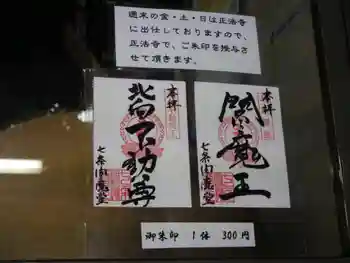 週末の金・土・日は正法寺
に出仕しておりますので、
正法寺で、ご朱印を授与さ
せて頂きます。
奉拝
閻魔王
七条閻魔堂
奉拝
北向不動尊
七条閻魔堂
御朱印 1体 300円